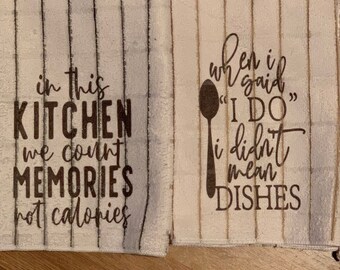 in this
KITCHEN
we count
MEMORIES
not calories
when i
said
"I DO"
i didn't
mean
DISHES